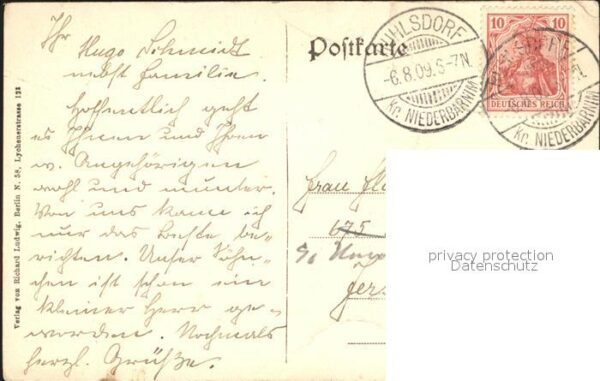 Ihr Hugo Schmidt
nebst Familie.
Hoffentlich geht
es Ihnen und Ihren
w. Angehörigen
wohl und munter.
Von uns kann ich
nur das Beste be-
richten. Unser Söhn-
chen ist schon ein
kleiner Herr ge-
worden. Nochmals
herzl. Grüße.
Verlag von Richard Ludwig, Berlin N. 58, Lychenerstrasse 123
Postkarte
RUHLSDORF
-6.8.09.6-7N.
Kr. NIEDERBARNIM
10 10
DEUTSCHES REICH
Kr. NIEDERBARNIM
Frau
675
privacy protection
Datenschutz